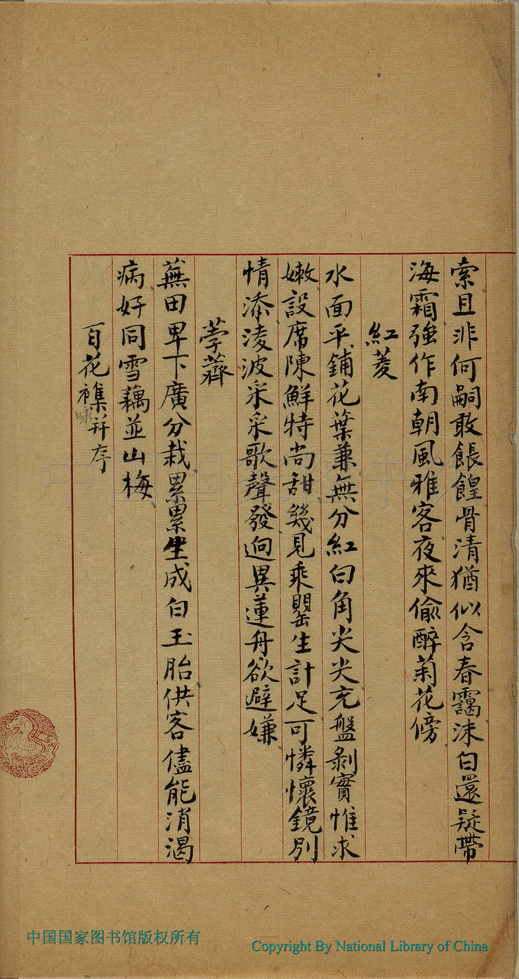 索且非何嗣敢餦餭骨清猶似含春靄沫白還疑帶
海霜強作南朝風雅客夜來偷醉菊花傍
紅菱
水面平鋪花葉兼無分紅白角尖尖充盤剝實惟求
嫩設席陳鮮特尚甜幾見乘罌生計足可憐懷鏡別
情添淩波采采歌聲發迥異蓮舟欲避嫌
荸薺
蕪田卑下廣分栽累累生成白玉胎供客儘能消渴
病好同雪藕並山梅
百花襍詠并序
中国国家图书馆版权所有
Copyright By National Library of China